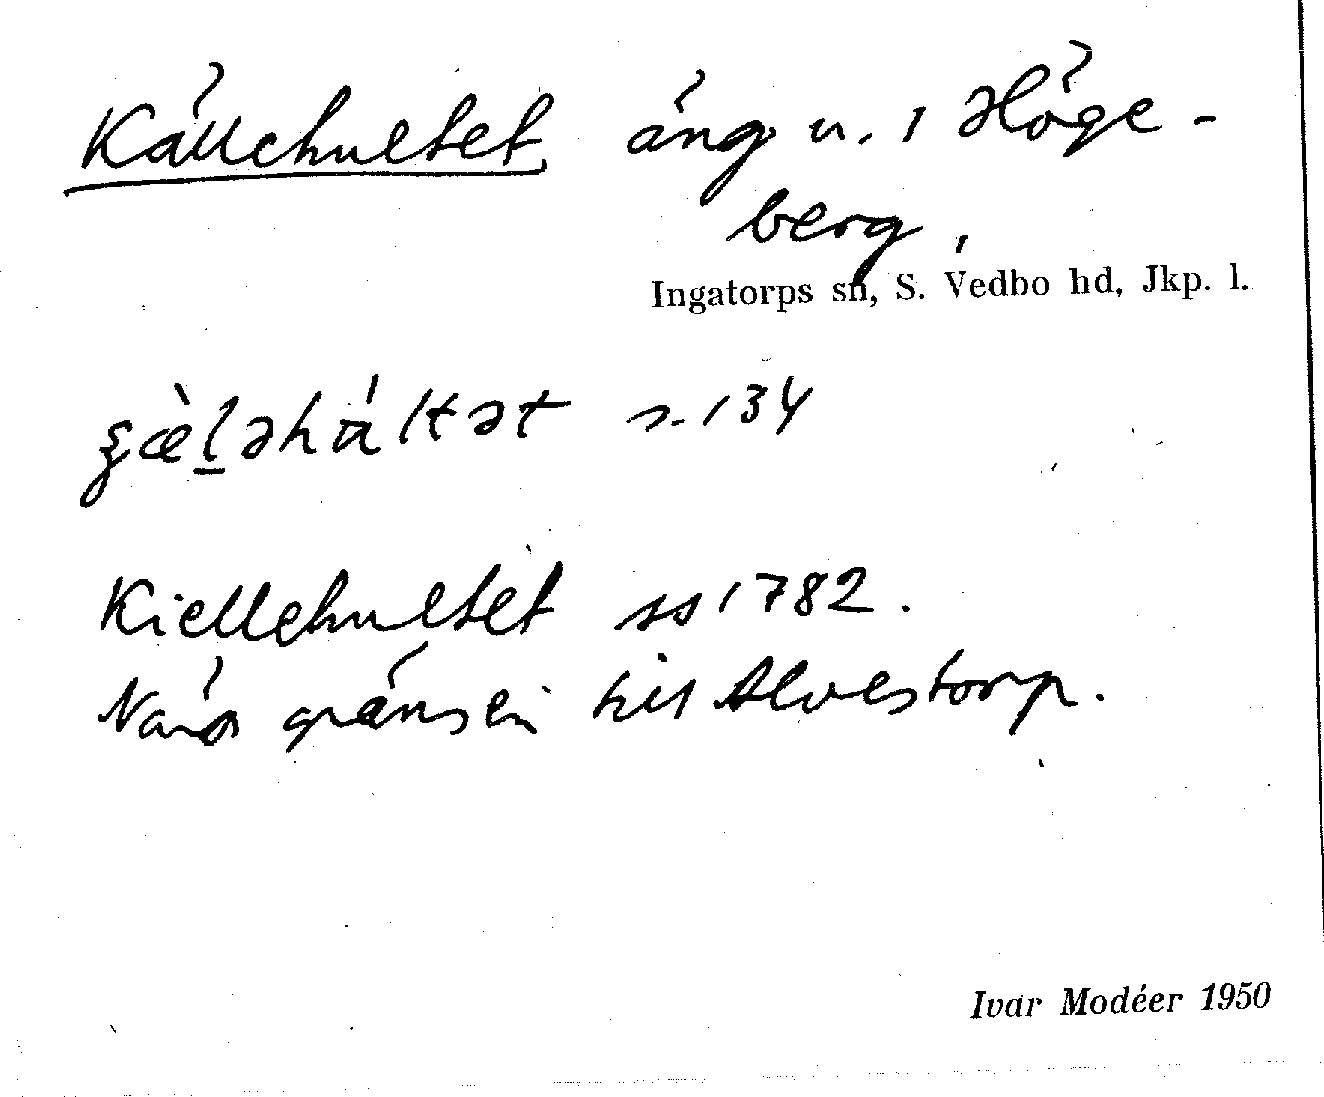 Källehultet äng n. 1 Höge-
berg,
Ingatorps sn, S. Vedbo hd, Jkp. l.
s. 134
Kiellehultet ss 1782.
Nära gränsen till Alvestorp.
Ivar Modéer 1950